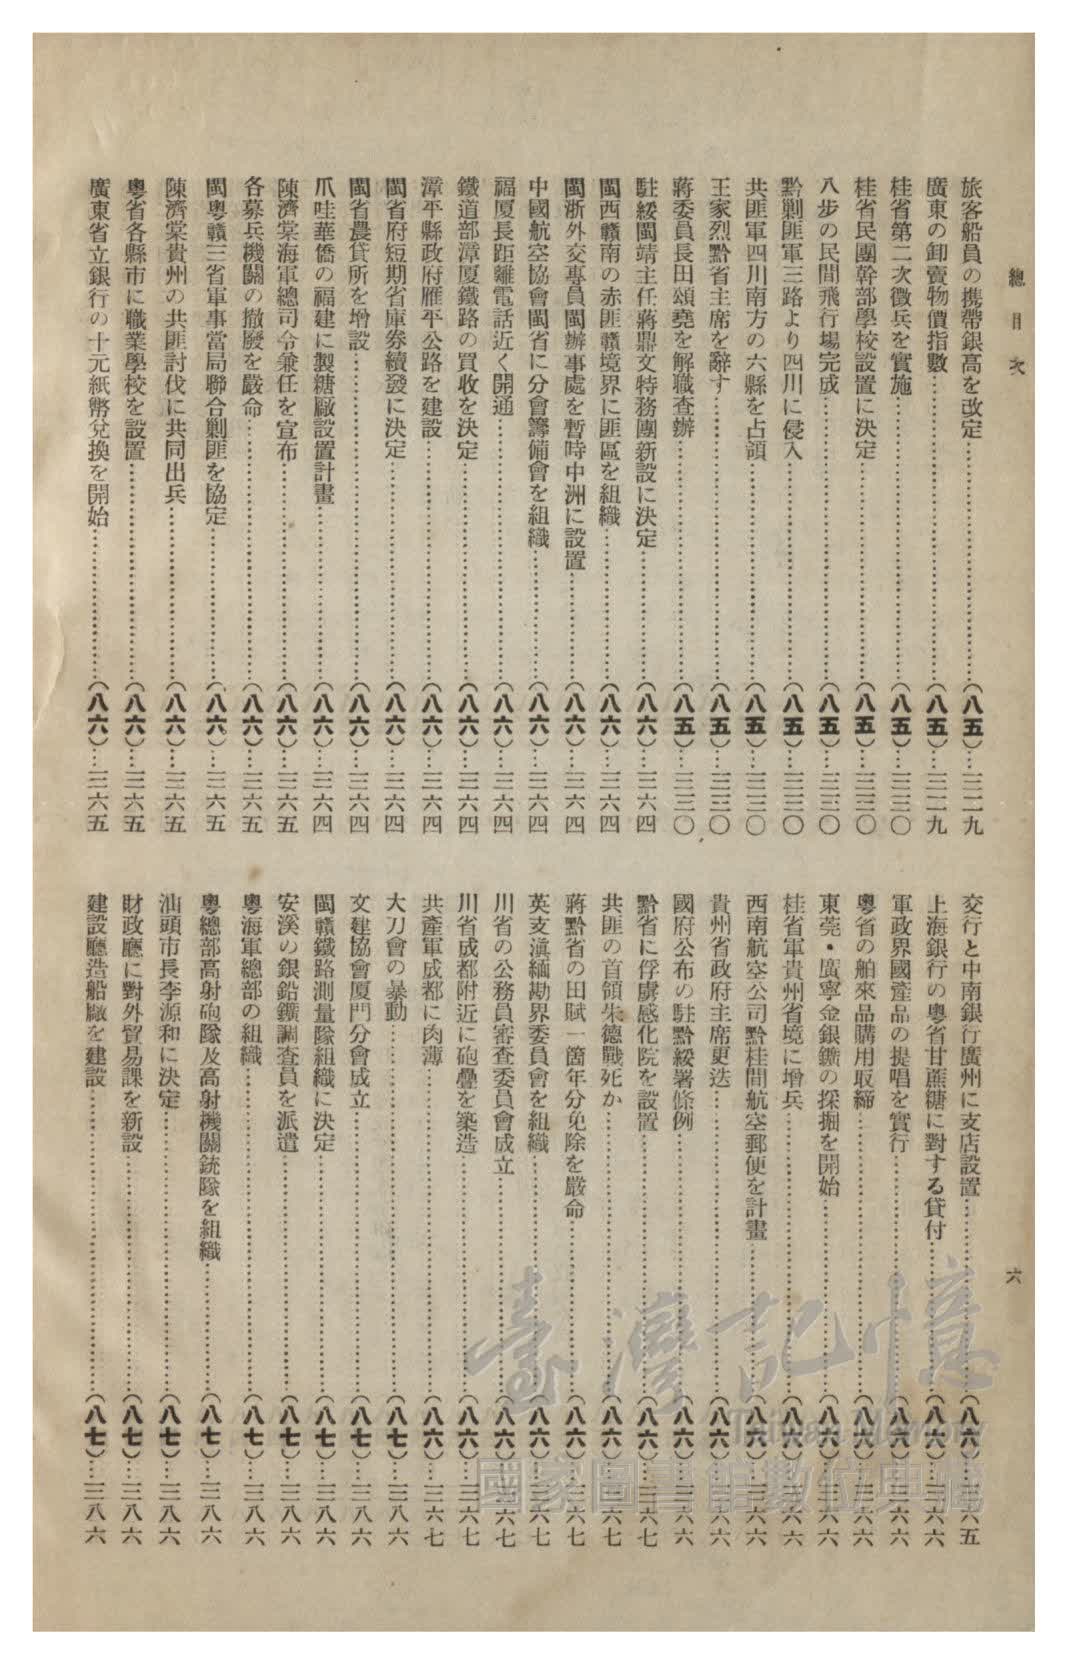 總目次
六
旅客船員の携帶銀高を改定…（八五）…三二九
廣東の卸賣物價指數…（八五）…三二九
桂省第二次徵兵を實施…（八五）…三三〇
桂省民團幹部學校設置に決定…（八五）…三三〇
八步の民間飛行場完成…（八五）…三三〇
黔剿匪軍三路より四川に侵入…（八五）…三三〇
共匪軍四川南方の六縣を占領…（八五）…三三〇
王家烈黔省主席を辭す…（八五）…三三〇
蔣委員長田頌堯を解職查辦…（八五）…三三〇
駐綏閩靖主任蔣鼎文特務團新設に決定…（八六）…三六四
閩西贛南の赤匪贛境界に匪區を組織…（八六）…三六四
閩浙外交專員閩辦事處を暫時中洲に設置…（八六）…三六四
中國航空協會閩省に分會籌備會を組織…（八六）…三六四
福厦長距離電話近く開通…（八六）…三六四
鐵道部漳厦鐵路の買收を決定…（八六）…三六四
漳平縣政府雁平公路を建設…（八六）…三六四
閩省府短期省庫券續發に決定…（八六）…三六四
閩省農貸所を增設…（八六）…三六四
爪哇華僑の福建に製糖廠設置計畫…（八六）…三六四
陳濟棠海軍總司令兼任を宣布…（八六）…三六五
各募兵機關の撤廢を嚴命…（八六）…三六五
閩粵贛三省軍事當局聯合剿匪を協定…（八六）…三六五
陳濟棠貴州の共匪討伐に共同出兵…（八六）…三六五
粵省各縣市に職業學校を設置…（八六）…三六五
廣東省立銀行の十元紙幣兌換を開始…（八六）…三六五
交行と中南銀行廣州に支店設置…（八六）…三六五
上海銀行の粵省甘蔗糖に對する貸付…（八六）…三六六
軍政界國產品の提唱を實行…（八六）…三六六
粵省の舶來品購用取締…（八六）…三六六
東莞・廣寧金銀鑛の採掘を開始…（八六）…三六六
桂省軍貴州省境に增兵…（八六）…三六六
西南航空公司黔桂間航空郵便を計畫…（八六）…三六六
貴州省政府主席更迭…（八六）…三六六
國府公布の駐黔綏署條例…（八六）…三六六
黔省に俘虜感化院を設置…（八六）…三六七
共匪の首領朱德戰死か…（八六）…三六七
蔣黔省の田賦一箇年分免除を嚴命…（八六）…三六七
英支滇緬勘界委員會を組織…（八六）…三六七
川省の公務員審查委員會成立…（八六）…三六七
川省成都附近に砲壘を築造…（八六）…三六七
共產軍成都に肉薄…（八六）…三六七
大刀會の暴動…（八七）…三八六
文建協會厦門分會成立…（八七）…三八六
閩贛鐵路測量隊組織に決定…（八七）…三八六
安溪の銀鉛鑛調查員を派遣…（八七）…三八六
粵海軍總部の組織…（八七）…三八六
粵總部高射砲隊及高射機關銃隊を組織…（八七）…三八六
汕頭市長李源和に決定…（八七）…三八六
財政廳に對外貿易課を新設…（八七）…三八六
建設廳造船廠を建設…（八七）…三八六
臺灣記憶
Taiwan Memory
國家圖書館數位典藏